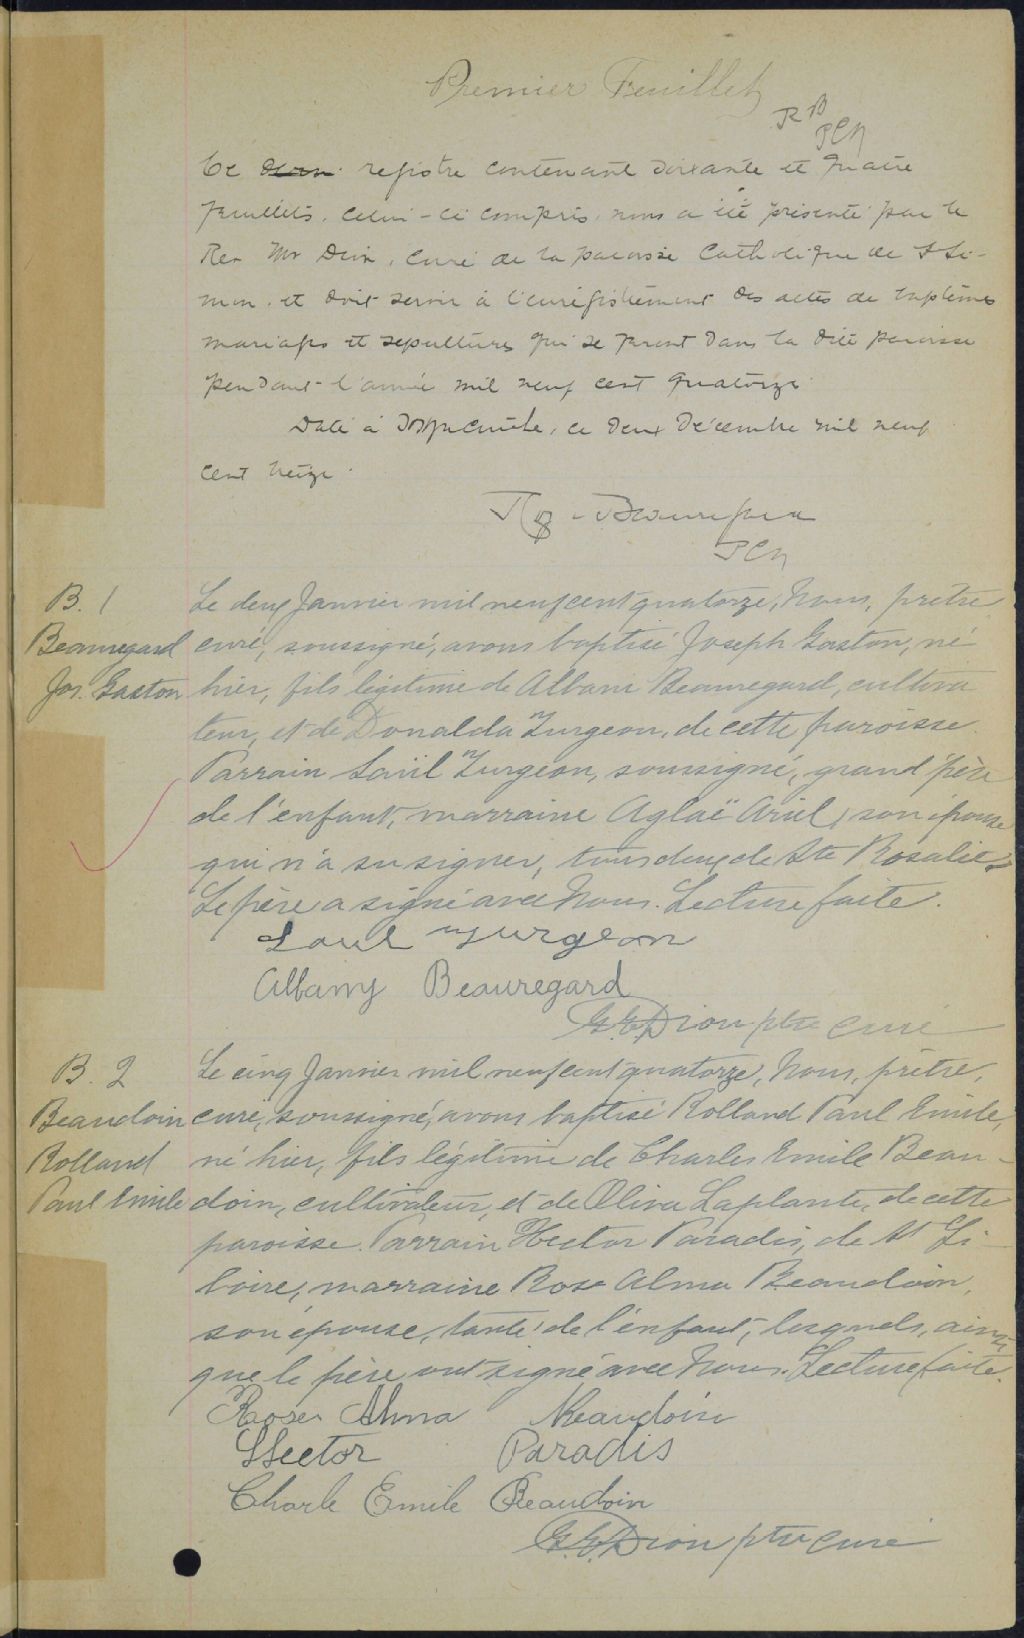 Premier Feuillet
R B
PCN
Ce registre contenant soixante et quatre
feuillets, celui-ci compris, nous a été présenté par le
Rev Mr Dion, curé de la paroisse Catholique de St Si-
mon, et doit servir à l'enrégistrement des actes de baptêmes
mariages et sépultures qui se feront dans la dite paroisse
pendant l'année mil neuf cent quatorze.
Daté à St Hyacinthe, ce deux décembre mil neuf
cent treize.
Beauregard
PCN
B. 1
Beauregard
Jos. Gaston
Le deux Janvier mil neuf cent quatorze, Nous, prêtre
curé, soussigné, avons baptisé Joseph Gaston, né
hier, fils légitime de Albani Beauregard, cultiva
teur, et de Donalda Turgeon, de cette paroisse.
Parrain Saül Turgeon, soussigné, grand'père
de l'enfant, marraine Aglaë Ariel, son épouse
qui n'a su signer, tous deux de Ste Rosalie.
Le père a signé avec Nous. Lecture faite.
Saul Turgeon
Albany Beauregard
G.E. Dion ptre curé
B. 2
Beaudoin
Rolland
Paul Emile
Le cinq Janvier mil neuf cent quatorze, Nous, prêtre,
curé, soussigné, avons baptisé Rolland Paul Emile,
né hier, fils légitime de Charles Emile Beau-
doin, cultivateur, et de Oliva Laplante, de cette
paroisse. Parrain Hector Paradis, de St Li-
boire, marraine Rose Alma Beaudoin,
son épouse, tante de l'enfant, lesquels, ainsi
que le père ont signé avec Nous. Lecture faite.
Rose Alma Beaudoin
Hector Paradis
Charle Emile Beaudoin
G.E. Dion ptre curé